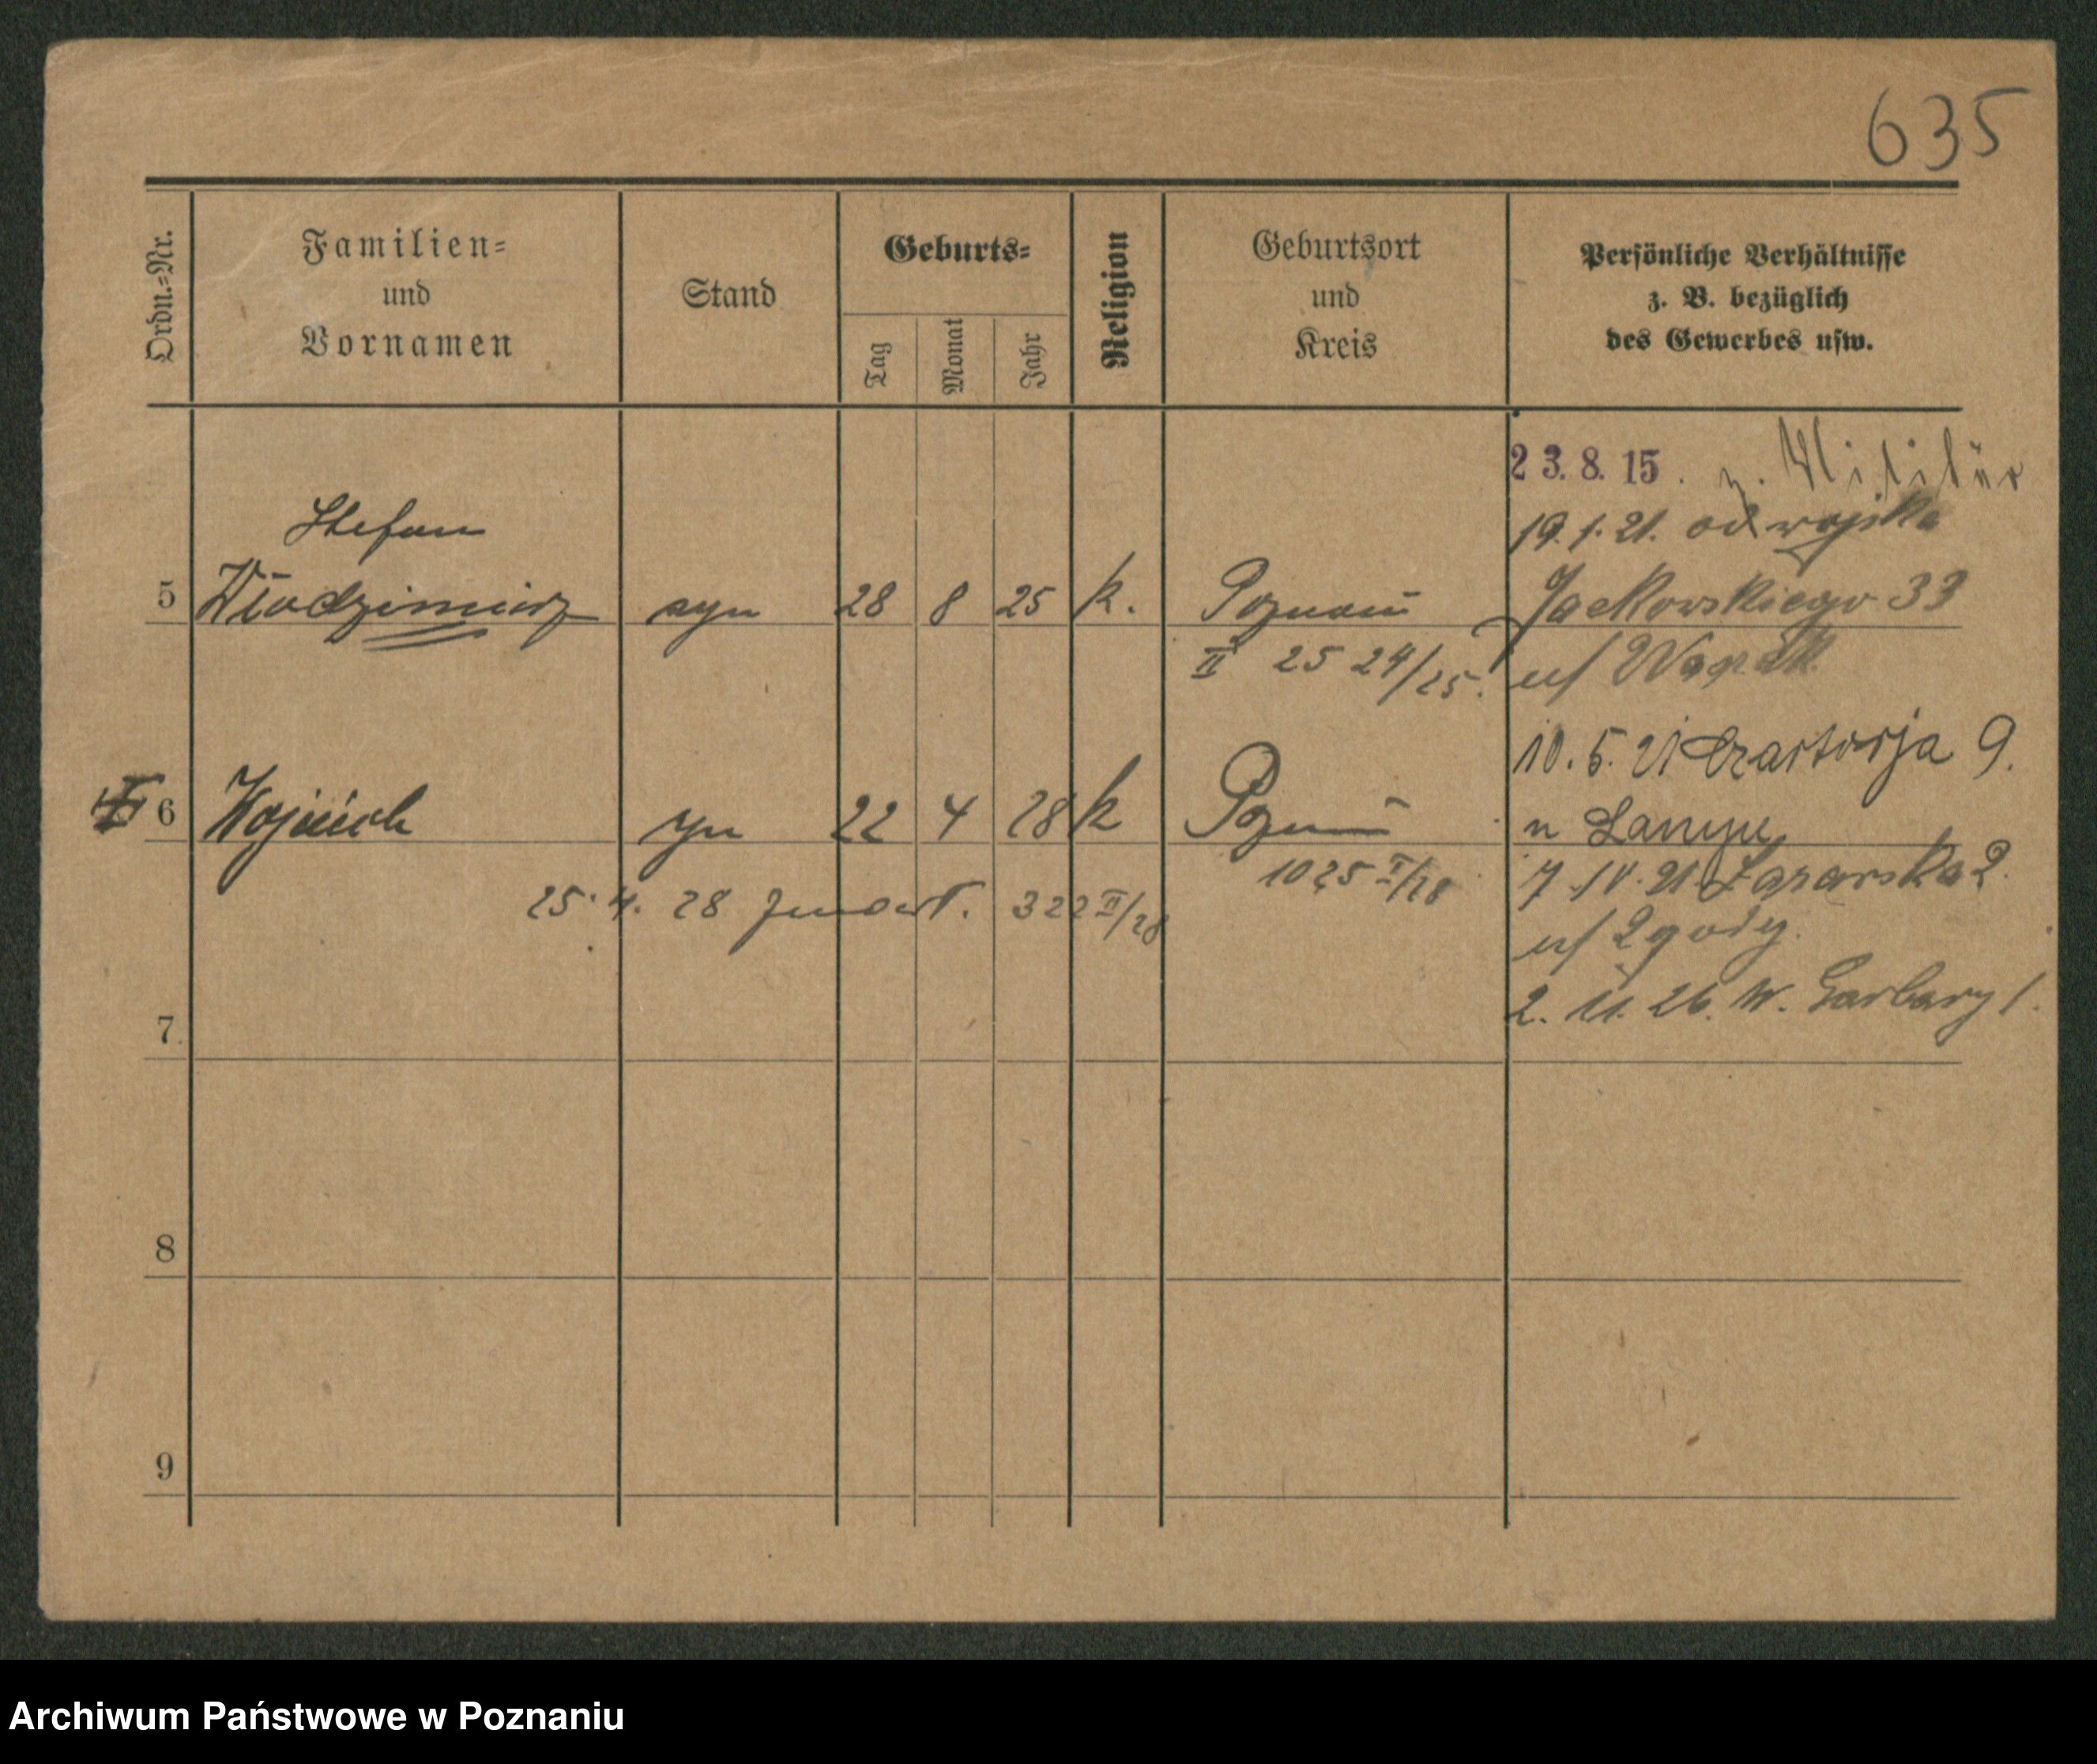 635
Ordn.-Nr.
Familien-
und
Vornamen
Stand
Geburts-
Tag
Monat
Jahr
Religion
Geburtsort
und
Kreis
Persönliche Verhältnisse
z. B. bezüglich
des Gewerbes usw.
23.8.15. z. Militär
19.1.21. od wojska
Stefan
5 Włodzimierz syn 28 8 25 k. Poznań Jackowskiego 33
II 25 24/25. u/
10.5.21 Czartorja 9.
6 Wojciech syn 22 4 28 k Poznań u
1025 I/28
7.IV.21. Łazarska 2.
25.4.28 zmarł. 322 II/28
u/ Zgody.
2.11.26. W. Garbary 1.
7
8
9
Archiwum Państwowe w Poznaniu